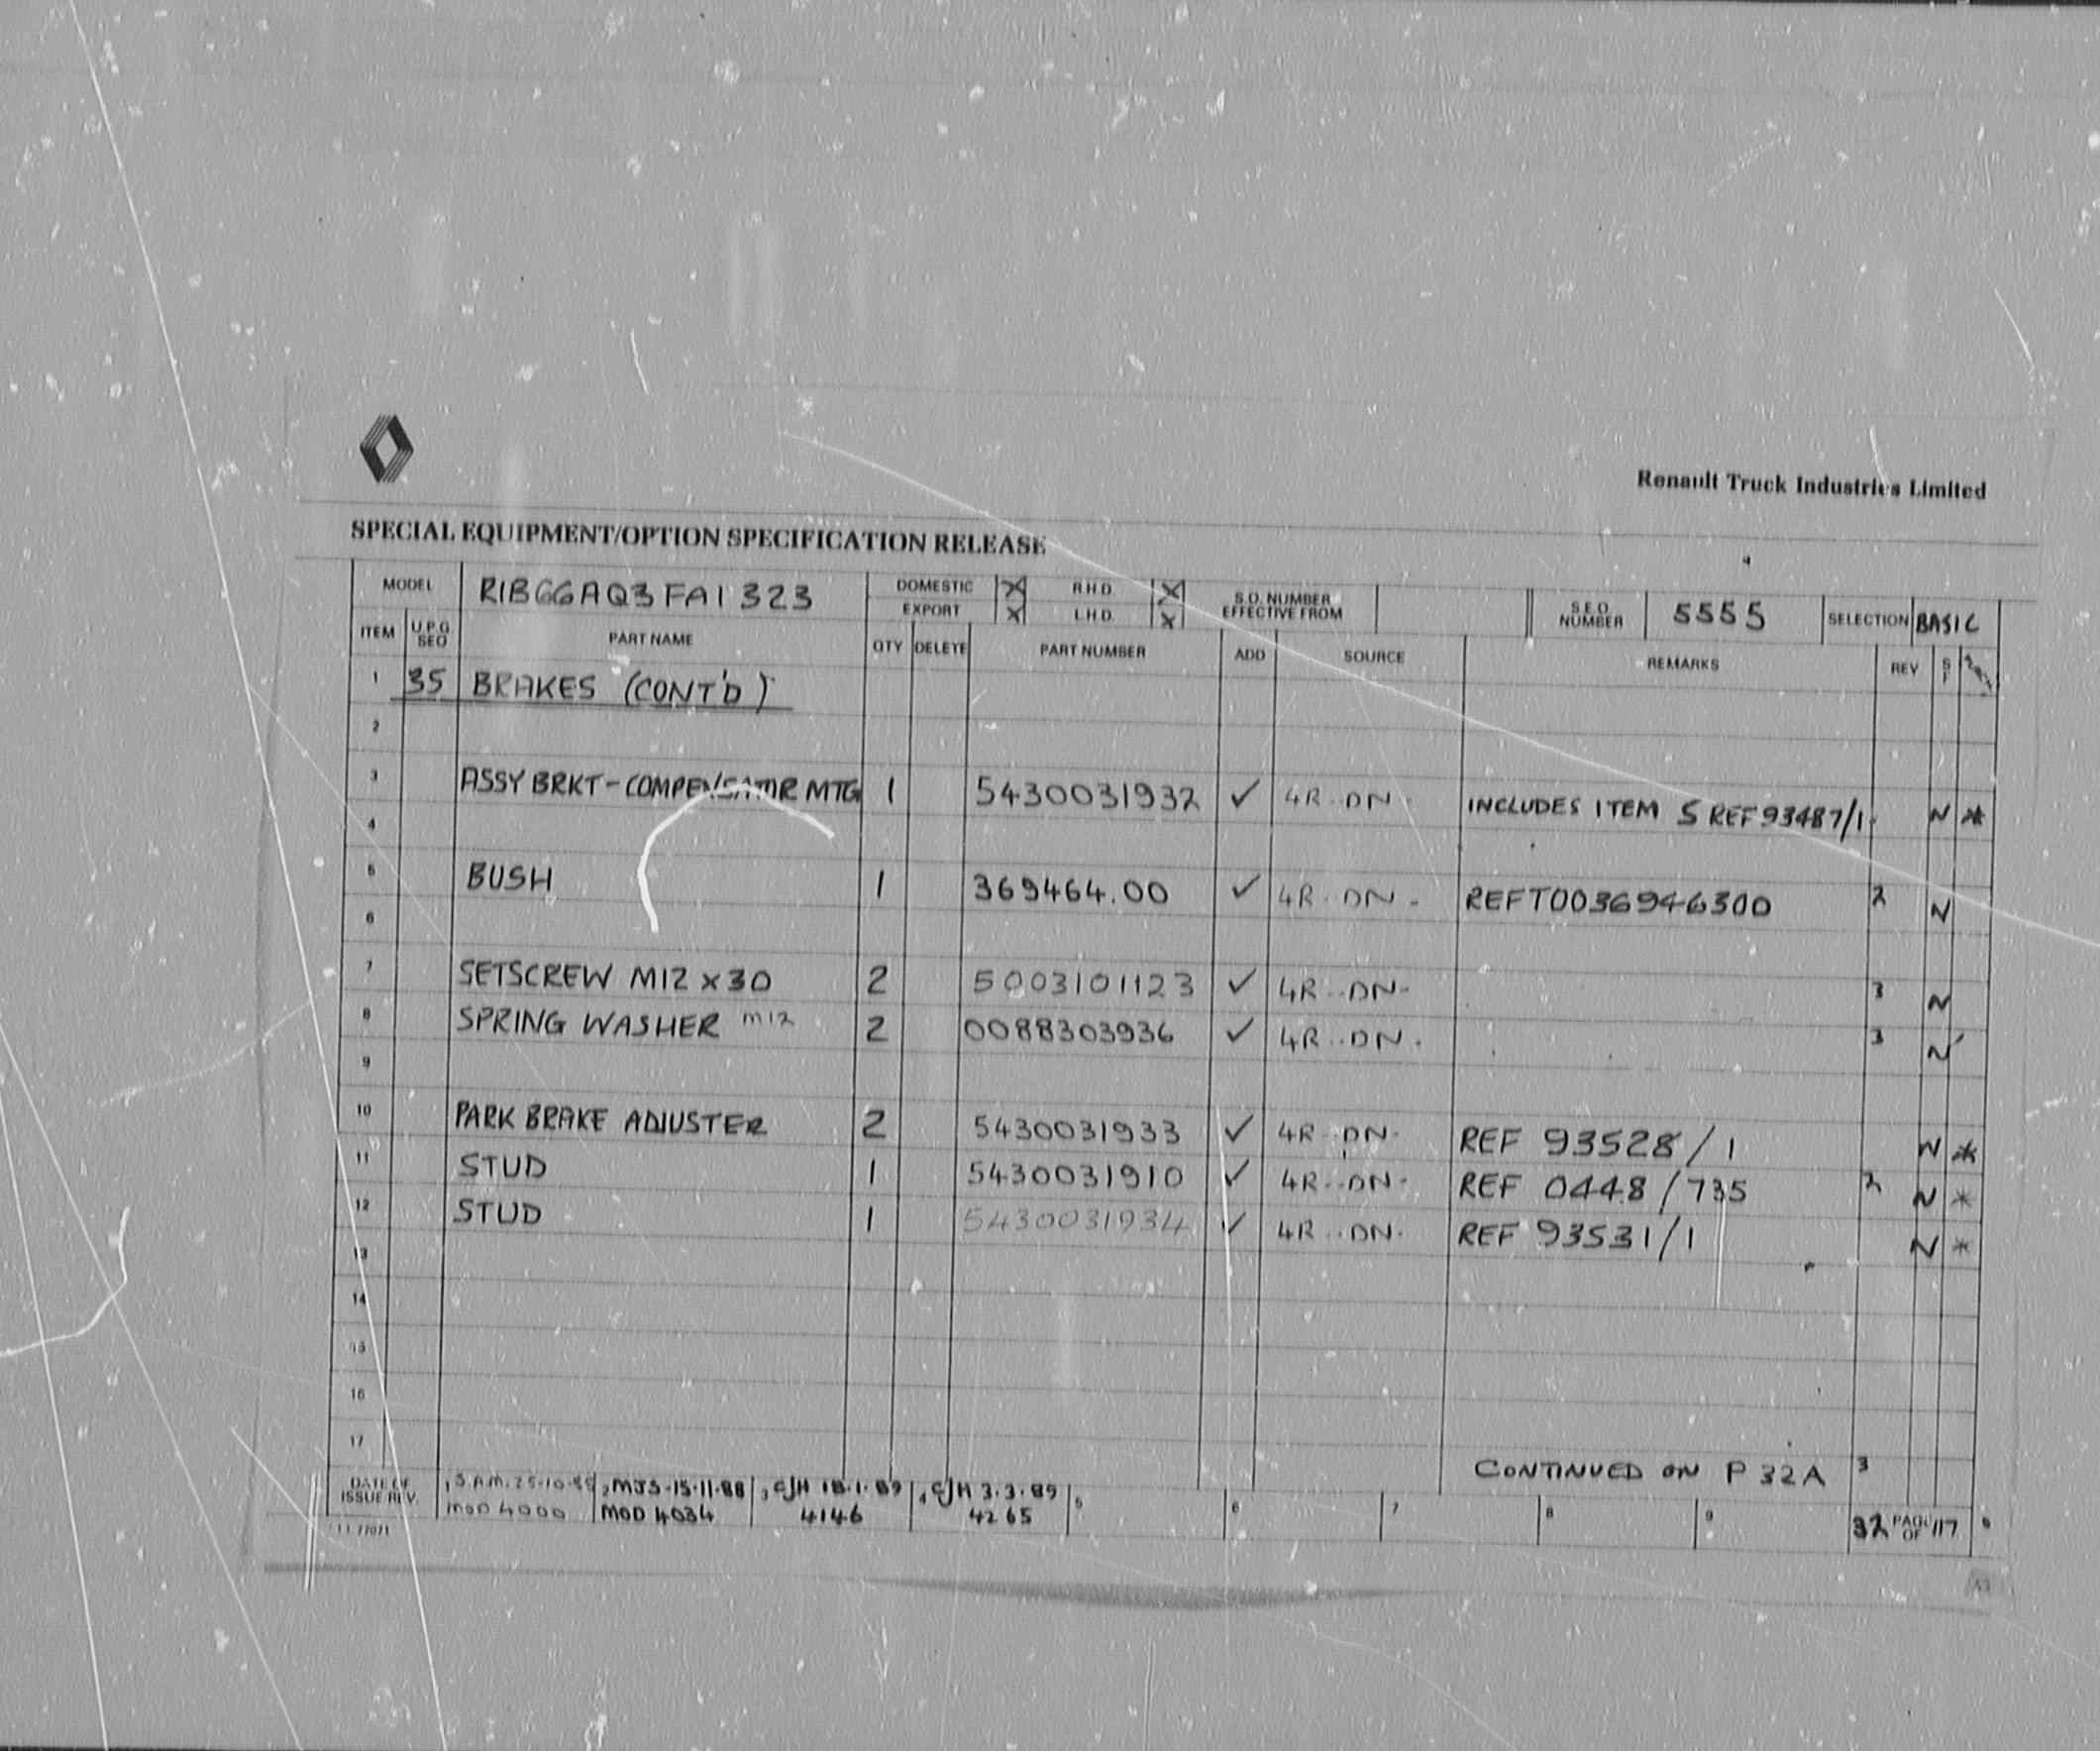 Renault Truck Industries Limited
SPECIAL EQUIPMENT/OPTION SPECIFICATION RELEASE
MODEL R1BGGAQ3FA1323 DOMESTIC X R.H.D. X S.O. NUMBER EFFECTIVE FROM S.E.O. NUMBER 5555 SELECTION BASIC
EXPORT X L.H.D. X
ITEM U.P.G SEQ PART NAME QTY DELETE PART NUMBER ADD SOURCE REMARKS REV S F
1 35 BRAKES (CONT'D)
2
3 ASSY BRKT-COMPENSATOR MTG 1 5430031932 ✓ 4R..DN. INCLUDES ITEM 5 REF 93487/1. N *
4
5 BUSH 1 369464.00 ✓ 4R..DN. REFT0036946300 2 N
6
7 SETSCREW M12 x 30 2 5003101123 ✓ 4R..DN. 3 N
8 SPRING WASHER M12 2 0088303936 ✓ 4R..DN. 3 N
9
10 PARK BRAKE ADJUSTER 2 5430031933 ✓ 4R..DN. REF 93528/1 N *
11 STUD 1 5430031910 ✓ 4R..DN. REF 0448/735 2 N *
12 STUD 1 5430031934 ✓ 4R..DN. REF 93531/1 N *
13
14
15
16
17 CONTINUED ON P 32A 3
DATE OF ISSUE REV. 1 S.A.M. 25-10-88 MOD 4000 2 MJS-15-11-88 MOD 4034 3 CJH 18.1.89 4146 4 CJH 3.3.89 4265 5 6 7 8 9 32 PAGE OF 117